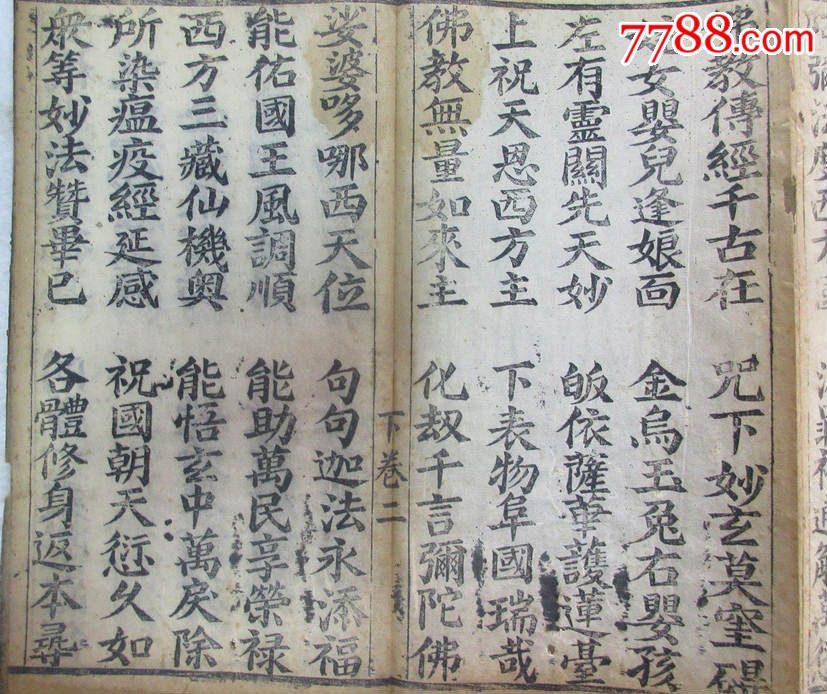 7788.com
教傳經千古在 咒下妙玄莫窒礙
女嬰兒逢娘面 金烏玉兔右嬰孩
左有靈關先天妙 皈依薩華護蓮臺
上祝天恩西方主 下表物阜國瑞哉
佛教無量如來主 化劫千言彌陀佛
下卷二
娑婆哆哪西天位 句句迦法永添福
能佑國王風調順 能助萬民享榮祿
西方三藏仙機奥 能悟玄中萬戾除
所染瘟疫經延感 祝國朝天愆久如
衆等妙法贊畢已 各體修身返本尋